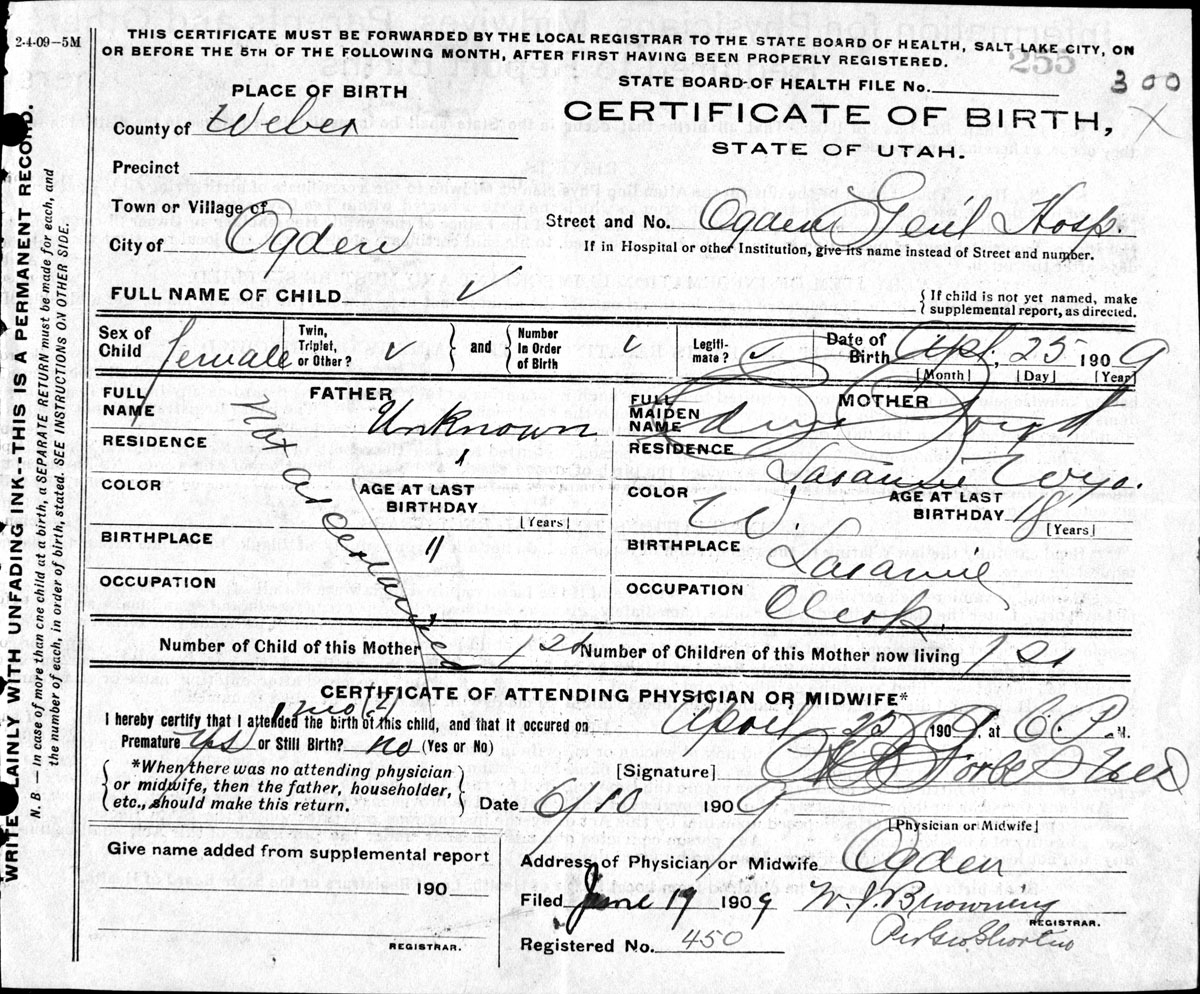 2-4-09–5M
THIS CERTIFICATE MUST BE FORWARDED BY THE LOCAL REGISTRAR TO THE STATE BOARD OF HEALTH, SALT LAKE CITY, ON
OR BEFORE THE 5TH OF THE FOLLOWING MONTH, AFTER FIRST HAVING BEEN PROPERLY REGISTERED.
255
300
STATE BOARD OF HEALTH FILE No.
PLACE OF BIRTH
CERTIFICATE OF BIRTH,
STATE OF UTAH.
County of Weber
Precinct
Town or Village of
City of Ogden
Street and No. Ogden Gen'l Hosp.
If in Hospital or other Institution, give its name instead of Street and number.
FULL NAME OF CHILD ✓
{ If child is not yet named, make
supplemental report, as directed.
Sex of Child female
Twin, Triplet, or Other? ✓ } and { Number in Order of Birth ✓
Legiti- mate? ✓
Date of Birth Apl. 25 1909
[Month] [Day] [Year]
FATHER
FULL NAME Unknown
RESIDENCE "
COLOR
AGE AT LAST BIRTHDAY
[Years]
BIRTHPLACE "
OCCUPATION
MOTHER
FULL MAIDEN NAME
RESIDENCE Laramie Wyo.
COLOR W.
AGE AT LAST BIRTHDAY 18
[Years]
BIRTHPLACE Laramie
OCCUPATION Clerk.
Number of Child of this Mother 1st
Number of Children of this Mother now living 1st
CERTIFICATE OF ATTENDING PHYSICIAN OR MIDWIFE*
I hereby certify that I attended the birth of this child, and that it occured on April 25 1909, at 6 P. M.
Premature yes or Still Birth? no (Yes or No)
{ *When there was no attending physician
or midwife, then the father, householder,
etc., should make this return. }
[Signature]
Date 6/10 1909
[Physician or Midwife]
Give name added from supplemental report
190
REGISTRAR.
Address of Physician or Midwife Ogden
Filed June 19 1909 W. J. Browning
REGISTRAR.
Per Geo Shorten
Registered No. 450
WRITE PLAINLY WITH UNFADING INK--THIS IS A PERMANENT RECORD.
N. B — In case of more than one child at a birth, a SEPARATE RETURN must be made for each, and
the number of each, in order of birth, stated. SEE INSTRUCTIONS ON OTHER SIDE.